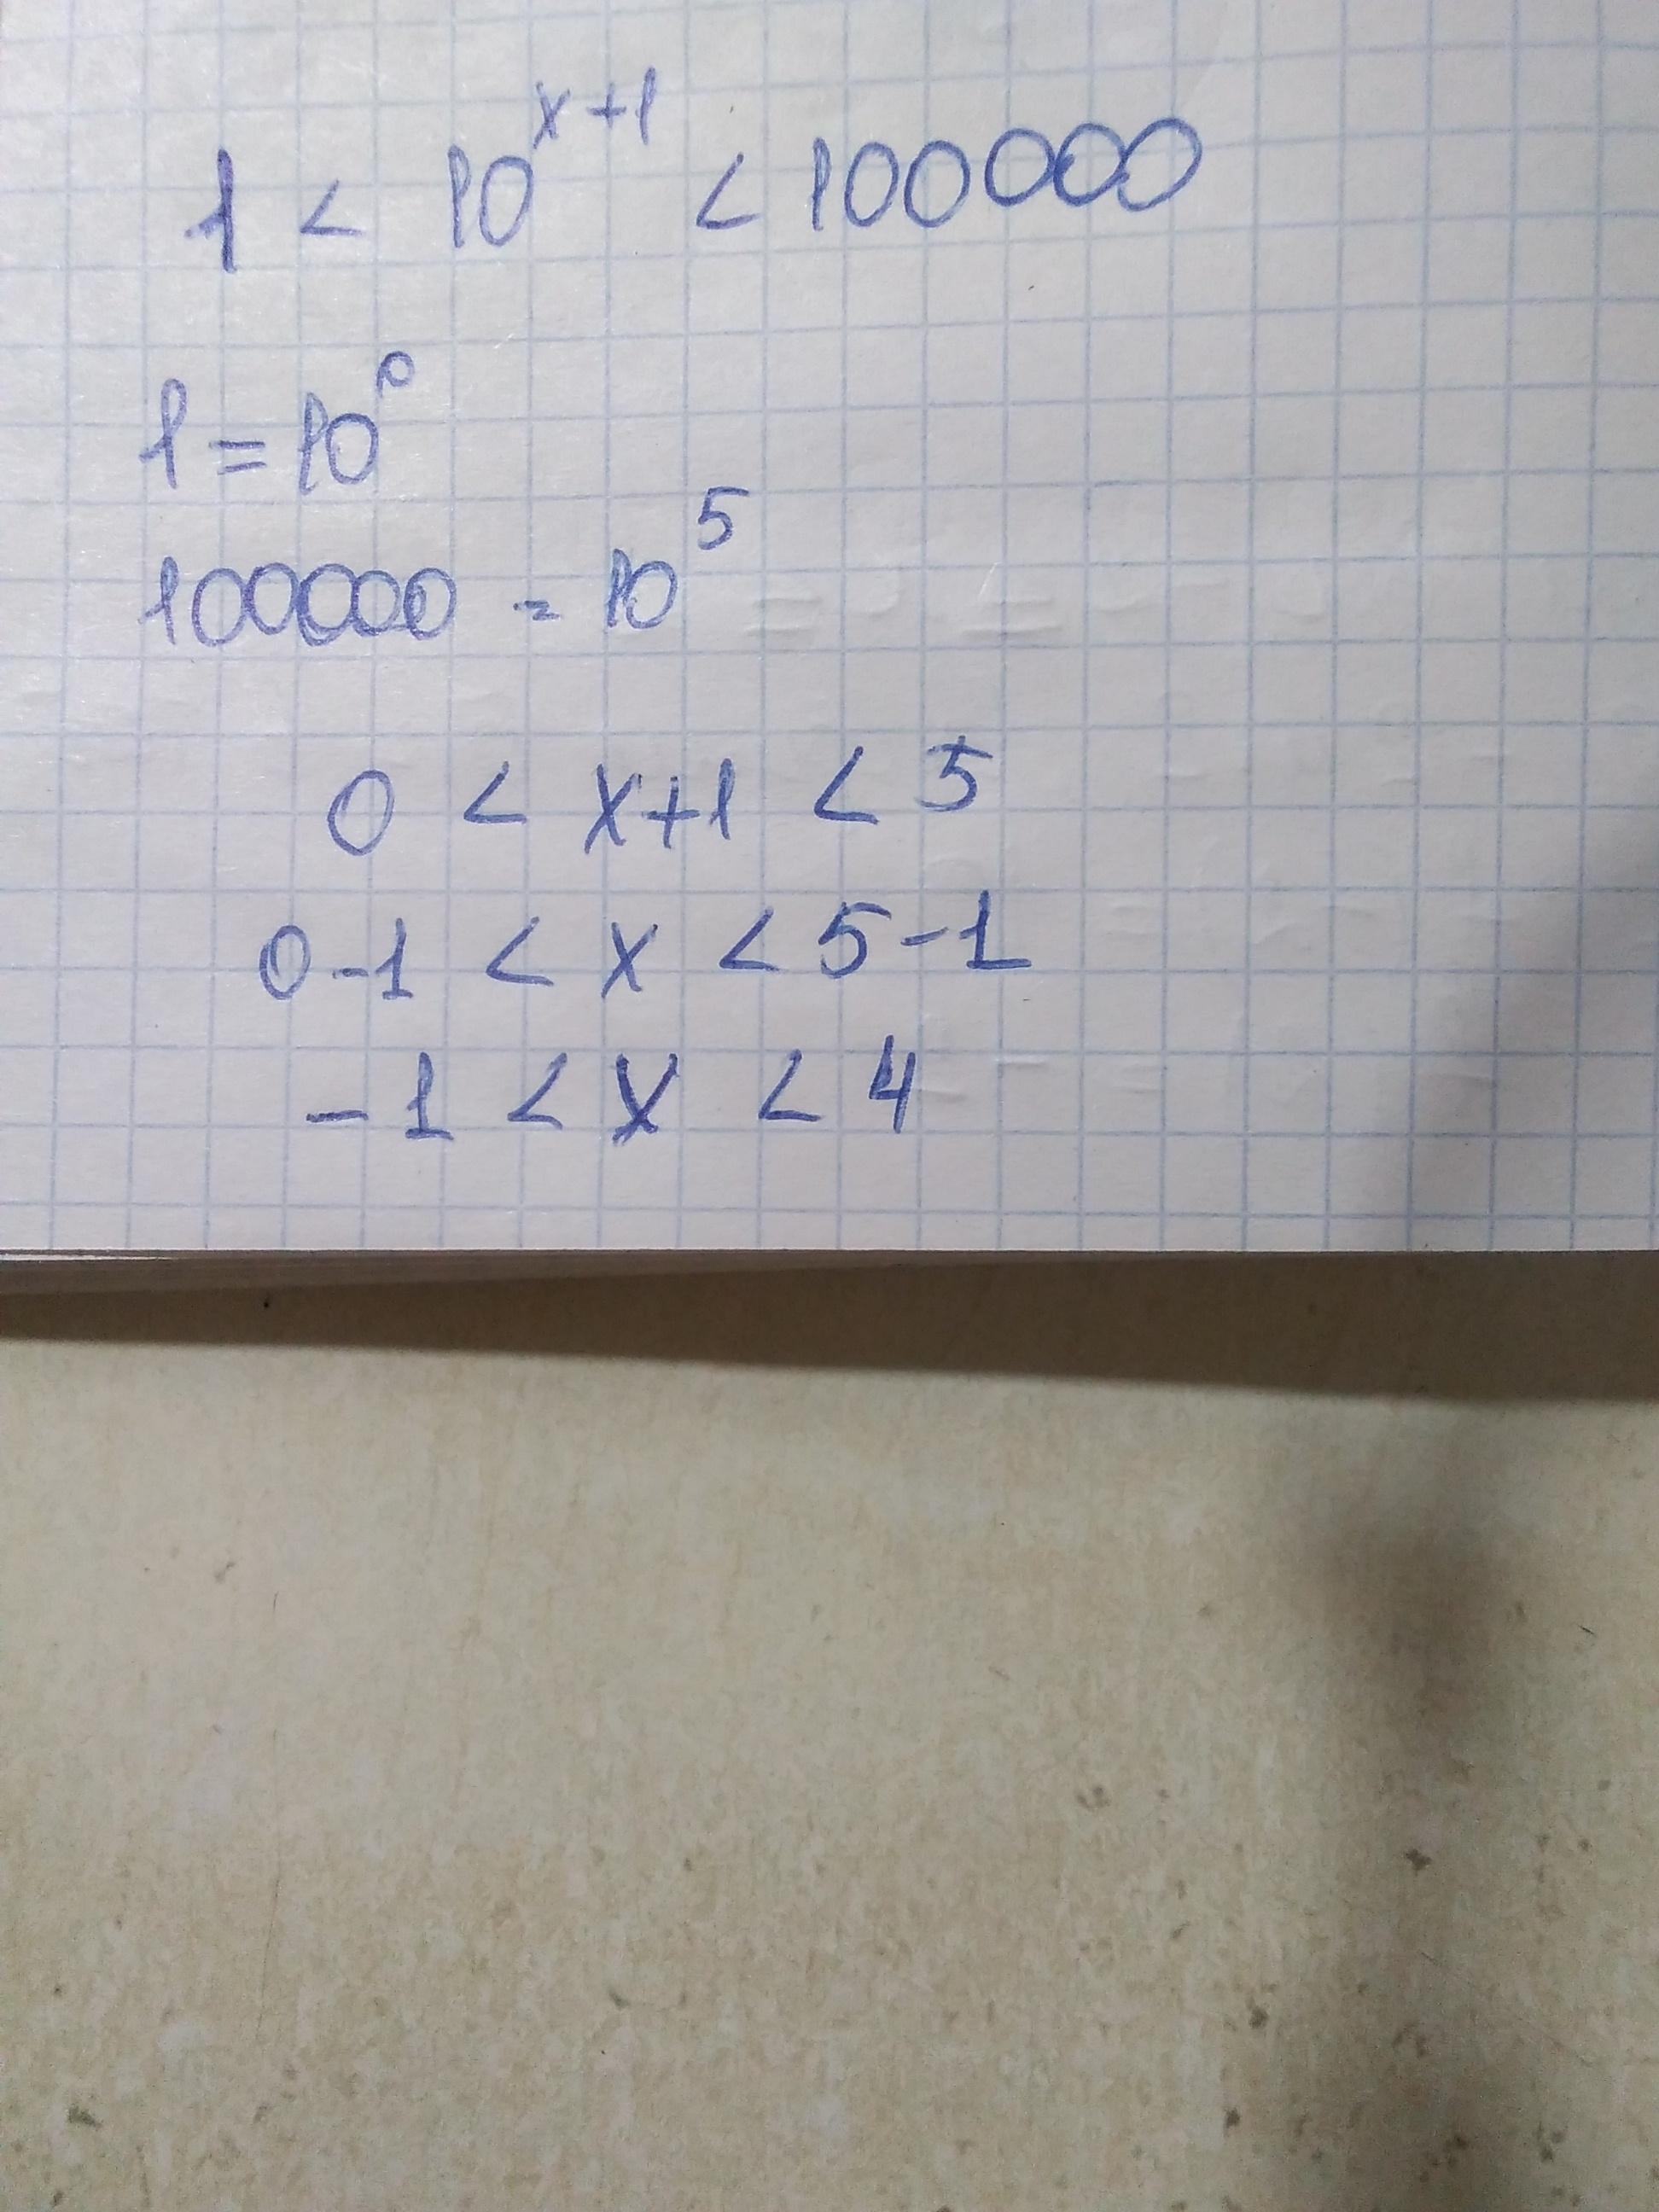 1 < 10^{x+1} < 100000
1 = 10^0
100000 = 10^5
0 < x+1 < 5
0-1 < x < 5-1
-1 < x < 4